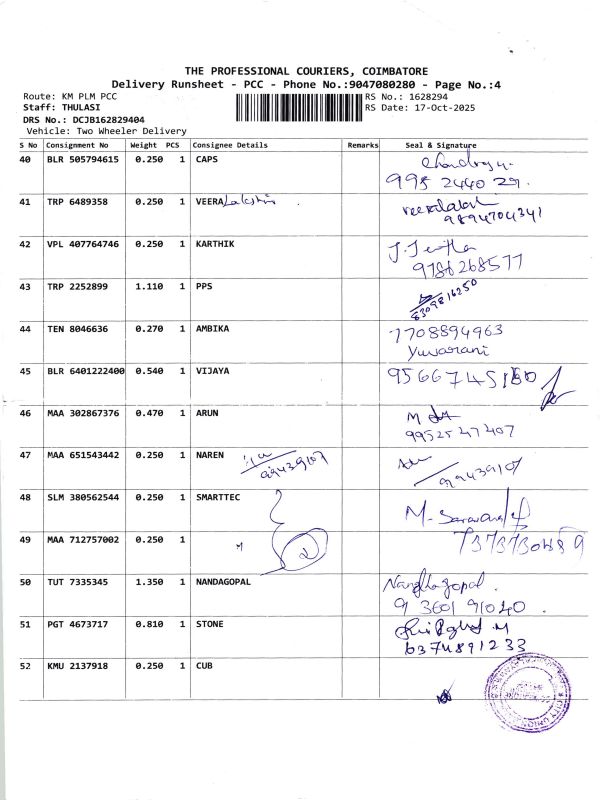 THE PROFESSIONAL COURIERS, COIMBATORE
Delivery Runsheet - PCC - Phone No.:9047080280 - Page No.:4
Route: KM PLM PCC RS No.: 1628294
Staff: THULASI RS Date: 17-Oct-2025
DRS No.: DCJB162829404
Vehicle: Two Wheeler Delivery
S No Consignment No Weight PCS Consignee Details Remarks Seal & Signature
40 BLR 505794615 0.250 1 CAPS
995 2440 29.
41 TRP 6489358 0.250 1 VEERA Lakshmi
9894704341
42 VPL 407764746 0.250 1 KARTHIK
9786268577
43 TRP 2252899 1.110 1 PPS
6309816250
44 TEN 8046636 0.270 1 AMBIKA 7708894963
Yuvarani
45 BLR 6401222400 0.540 1 VIJAYA
46 MAA 302867376 0.470 1 ARUN
9952547407
47 MAA 651543442 0.250 1 NAREN 99439107
99439107
48 SLM 380562544 0.250 1 SMARTTEC
49 MAA 712757002 0.250 1 M
50 TUT 7335345 1.350 1 NANDAGOPAL Nandhagopal.
9 3601 91040.
51 PGT 4673717 0.810 1 STONE
6374891233
52 KMU 2137918 0.250 1 CUB
CITY UNION